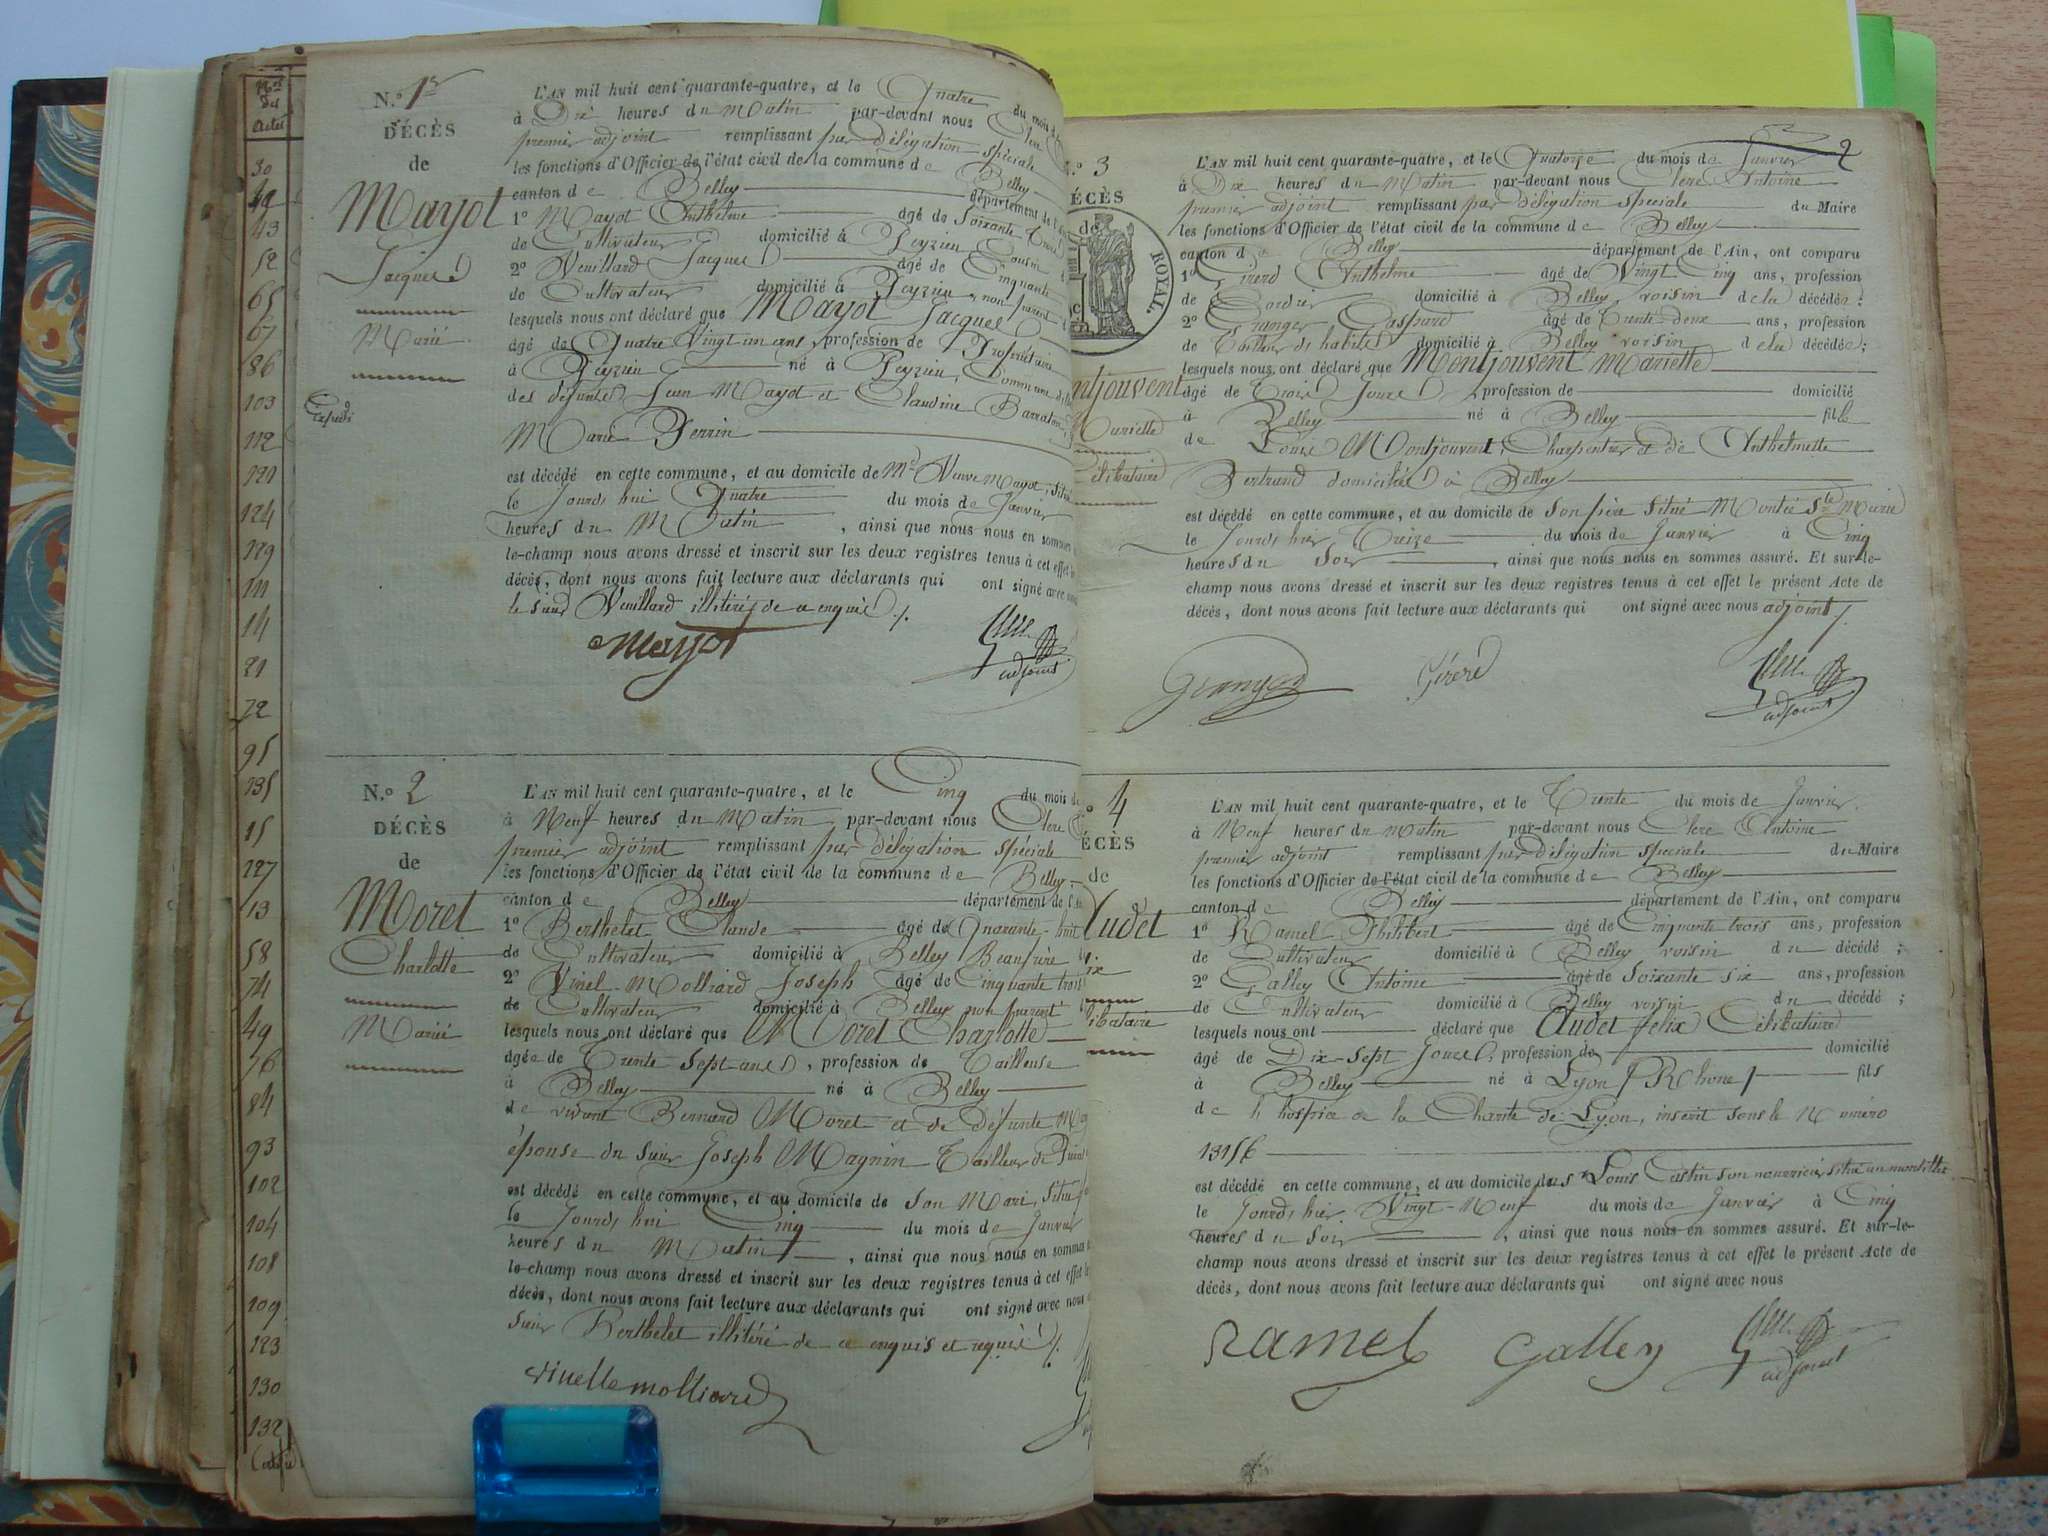 Nos
des
actes
30
43
52
65
67
86
103
112
121
124
129
111
14
21
72
95
135
15
127
13
58
74
49
76
84
93
102
104
108
109
123
130
132
N.o 1er
DÉCÈS
de
Mayot
Jacques
Marié
Expédié
L'AN mil huit cent quarante-quatre, et le Quatre du mois d
à Dix heures du Matin par-devant nous Clerc
premier adjoint remplissant par délégation spéciale
les fonctions d'Officier de l'état civil de la commune de Belley
canton de Belley département de l'Ain
1o Mayot Anthelme âgé de Soixante Trois
de Cultivateur domicilié à Peyzieu Cousin
2o Veuillard Jacques âgé de Cinquante
de Cultivateur domicilié à Peyzieu, non parent
lesquels nous ont déclaré que Mayot Jacques
âgé de Quatre Vingt un ans, profession de Propriétaire
à Peyzieu né à Peyzieu, Commune de
des défunts Jean Mayot et Claudine Barraton
Marie Perrin
est décédé en cette commune, et au domicile de Me Veuve Mayot, Situé
le Jourd'hui Quatre du mois de Janvier
heures du Matin, ainsi que nous nous en sommes
le-champ nous avons dressé et inscrit sur les deux registres tenus à cet effet
décès, dont nous avons fait lecture aux déclarants qui ont signé avec nous
le sieur Veuillard illitéré de ce enquis /.
Mayot
Clerc
adjoint
N.o 2
DÉCÈS
de
Moret
Charlotte
Marié
L'AN mil huit cent quarante-quatre, et le Cinq du mois de
à Neuf heures du Matin par-devant nous Clerc
premier adjoint remplissant par délégation spéciale
les fonctions d'Officier de l'état civil de la commune de Belley
canton de Belley département de l'Ain
1o Berthelet Claude âgé de Quarante-huit
de Cultivateur domicilié à Belley Beaufrère
2o Vinel-Molliard Joseph âgé de Cinquante trois
de Cultivateur domicilié à Belley non parent
lesquels nous ont déclaré que Moret Charlotte
âgée de Trente Sept ans, profession de Tailleuse
à Belley né à Belley
de vivant Bernard Moret et de défunte
épouse du sieur Joseph Magnin Tailleur de
est décédé en cette commune, et au domicile de Son Mari, Situé
le Jourd'hui Cinq du mois de Janvier
heures du Matin, ainsi que nous nous en sommes
le-champ nous avons dressé et inscrit sur les deux registres tenus à cet effet
décès, dont nous avons fait lecture aux déclarants qui ont signé avec nous
Sieur Berthelet illitéré de ce enquis et requis /.
vinelle molliard
2
o 3
ÉCÈS
de
ROYAL.
ontjouvent
Mariette
Célibataire
L'AN mil huit cent quarante-quatre, et le Quatorze du mois de Janvier
à Dix heures du Matin par-devant nous Clerc Antoine
premier adjoint remplissant par délégation spéciale du Maire
les fonctions d'Officier de l'état civil de la commune de Belley
canton de Belley département de l'Ain, ont comparu
1o Girerd Anthelme âgé de Vingt Cinq ans, profession
de Cordier domicilié à Belley voisin de la décédée;
2o Granger Gaspard âgé de Trente-deux ans, profession
de Tailleur d'habits domicilié à Belley voisin de la décédée;
lesquels nous ont déclaré que Montjouvent Mariette
âgé de Trois Jours, profession de domicilié
à Belley né à Belley fille
de Louis Montjouvent, Charpentier et de Anthelmette
Bertrand domiciliés à Belley
est décédé en cette commune, et au domicile de Son père Situé Montée Ste Marie
le Jourd'hier Treize du mois de Janvier à Cinq
heures du Soir, ainsi que nous nous en sommes assuré. Et sur-le-
champ nous avons dressé et inscrit sur les deux registres tenus à cet effet le présent Acte de
décès, dont nous avons fait lecture aux déclarants qui ont signé avec nous adjoint /.
Granger Girerd Clerc
adjoint
o 4
ÉCÈS
de
Audet
lix
libataire
L'AN mil huit cent quarante-quatre, et le Trente du mois de Janvier
à Neuf heures du Matin par-devant nous Clerc Antoine
premier adjoint remplissant par délégation spéciale du Maire
les fonctions d'Officier de l'état civil de la commune de Belley
canton de Belley département de l'Ain, ont comparu
1o Ramel Philibert âgé de Cinquante trois ans, profession
de Cultivateur domicilié à Belley voisin du décédé;
2o Galley Antoine âgé de Soixante Six ans, profession
de Cultivateur domicilié à Belley voisin du décédé;
lesquels nous ont déclaré que Audet Felix Célibataire
âgé de Dix-Sept Jours, profession de domicilié
à Belley né à Lyon /Rhône/ fils
de l'hospice de la Charité de Lyon, inscrit sous le Numéro
est décédé en cette commune, et au domicile du Sr Louis Castin son nourricier situé
le Jourd'hier Vingt-Neuf du mois de Janvier à Cinq
heures du Soir, ainsi que nous nous en sommes assuré. Et sur-le-
champ nous avons dressé et inscrit sur les deux registres tenus à cet effet le présent Acte de
décès, dont nous avons fait lecture aux déclarants qui ont signé avec nous
Ramel Galley Clerc
adjoint